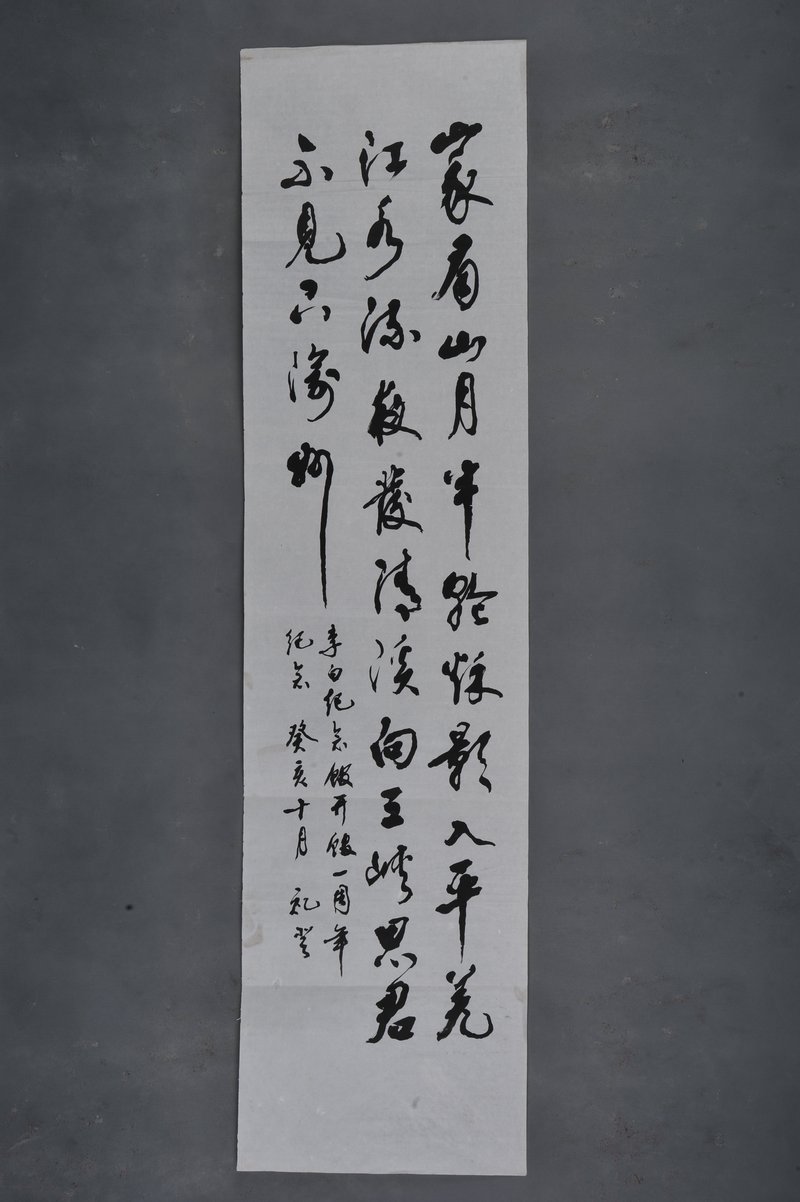 峨眉山月半轮秋影入平羌
江水流夜發清溪向三峡思君
不見下渝州
李白纪念馆开馆一周年
纪念 癸亥十月